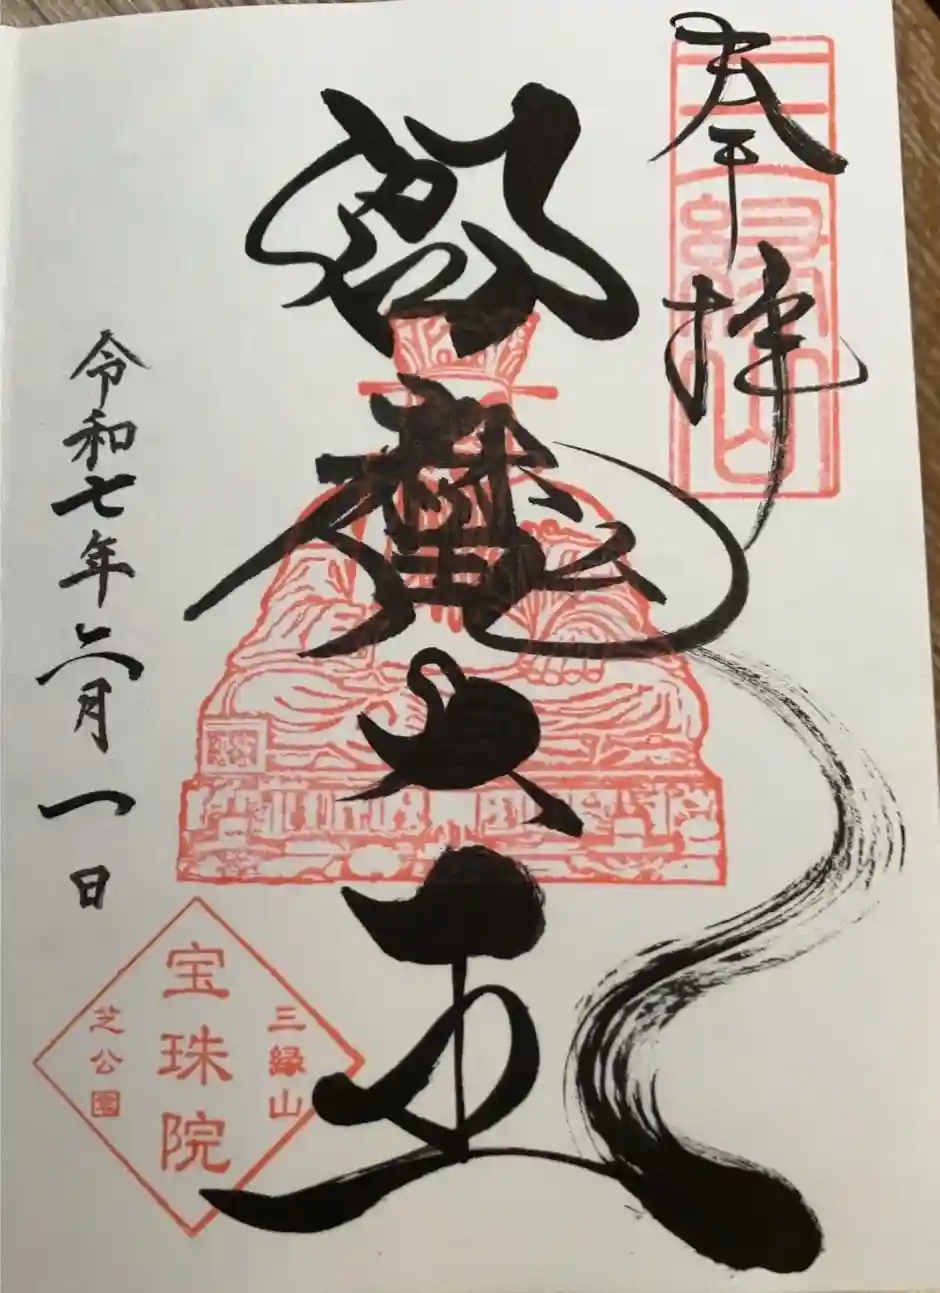 奉拝
三縁山
閻魔大王
令和七年六月一日
三縁山
宝珠院
芝公園